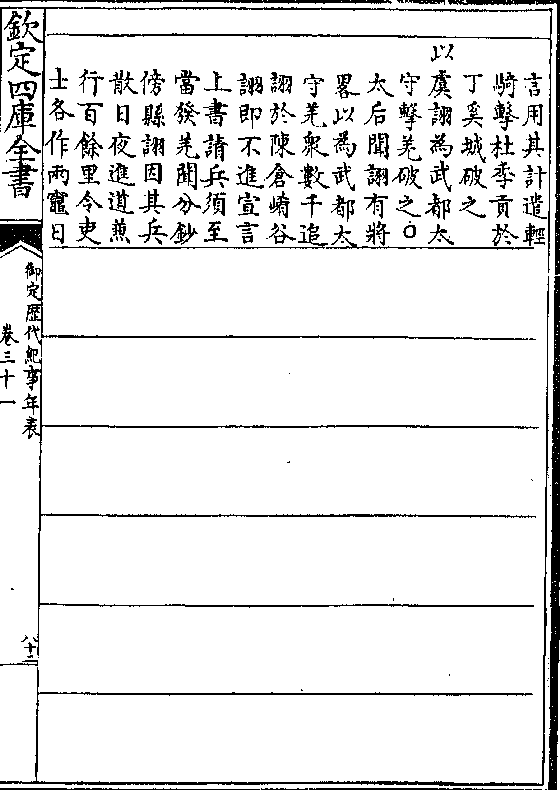 言用其計遣輕
騎擊杜季貢於
丁奚城破之
以虞詡為武都太
守擊羌破之○
太后聞詡有將
畧以為武都太
守羌衆數千追
詡於陳倉崤谷
詡即不進宣言
上書請兵須至
當發羌聞分鈔
傍縣詡因其兵
散日夜進道兼
行百餘里令吏
士各作兩竈日
欽定四庫全書
御定歴代紀事年表
卷三十一